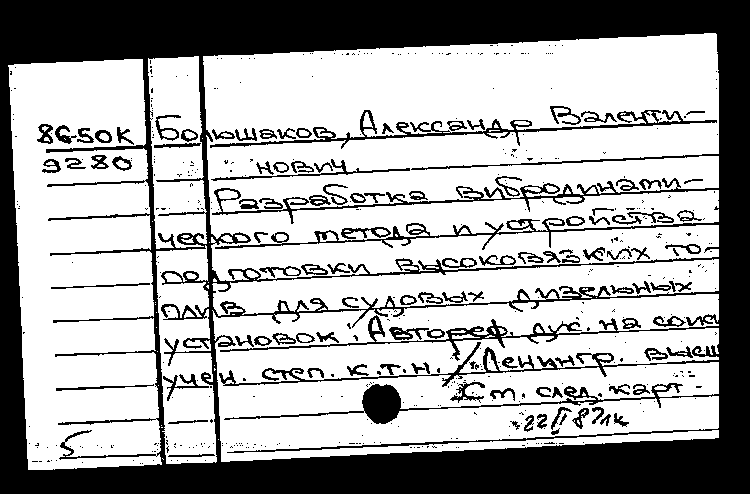 86-50К Большаков, Александр Валенти-
9280 нович.
Разработка вибродинами-
ческого метода и устройства
подготовки высоковязких то-
плив для судовых дизельных
установок. Автореф. дис. на соиск
учен. степ. к.т.н. / Ленингр. высш
См. след. карт.
22 II 87
5